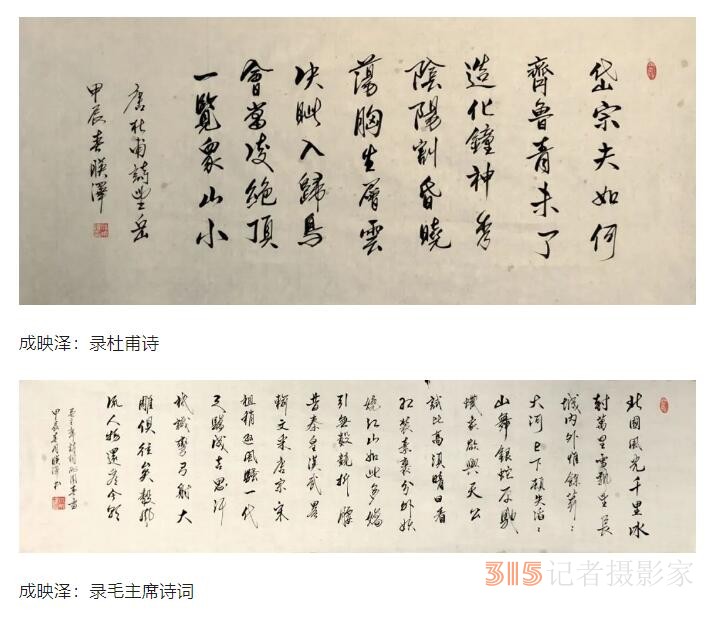 岱宗夫如何
齊魯青未了
造化鐘神秀
陰陽割昏曉
蕩胸生層雲
决眦入歸鳥
會當凌絶頂
一覽衆山小
唐杜甫詩望岳
甲辰春映澤
成映泽：录杜甫诗
北國風光千里冰
封萬里雪飄望長
城内外惟餘莽〻
大河上下頓失滔〻
山舞銀蛇原馳
蠟象欲與天公
試比高須晴日看
紅裝素裹分外妖
嬈江山如此多嬌
引無數競折腰
昔秦皇漢武略
輸文采唐宗宋
祖稍遜風騷一代
天驕成吉思汗
祇識彎弓射大
雕俱往矣數風
流人物還看今朝
毛主席詩詞沁園春雪
甲辰 月映澤书
315记者摄影家
成映泽：录毛主席诗词